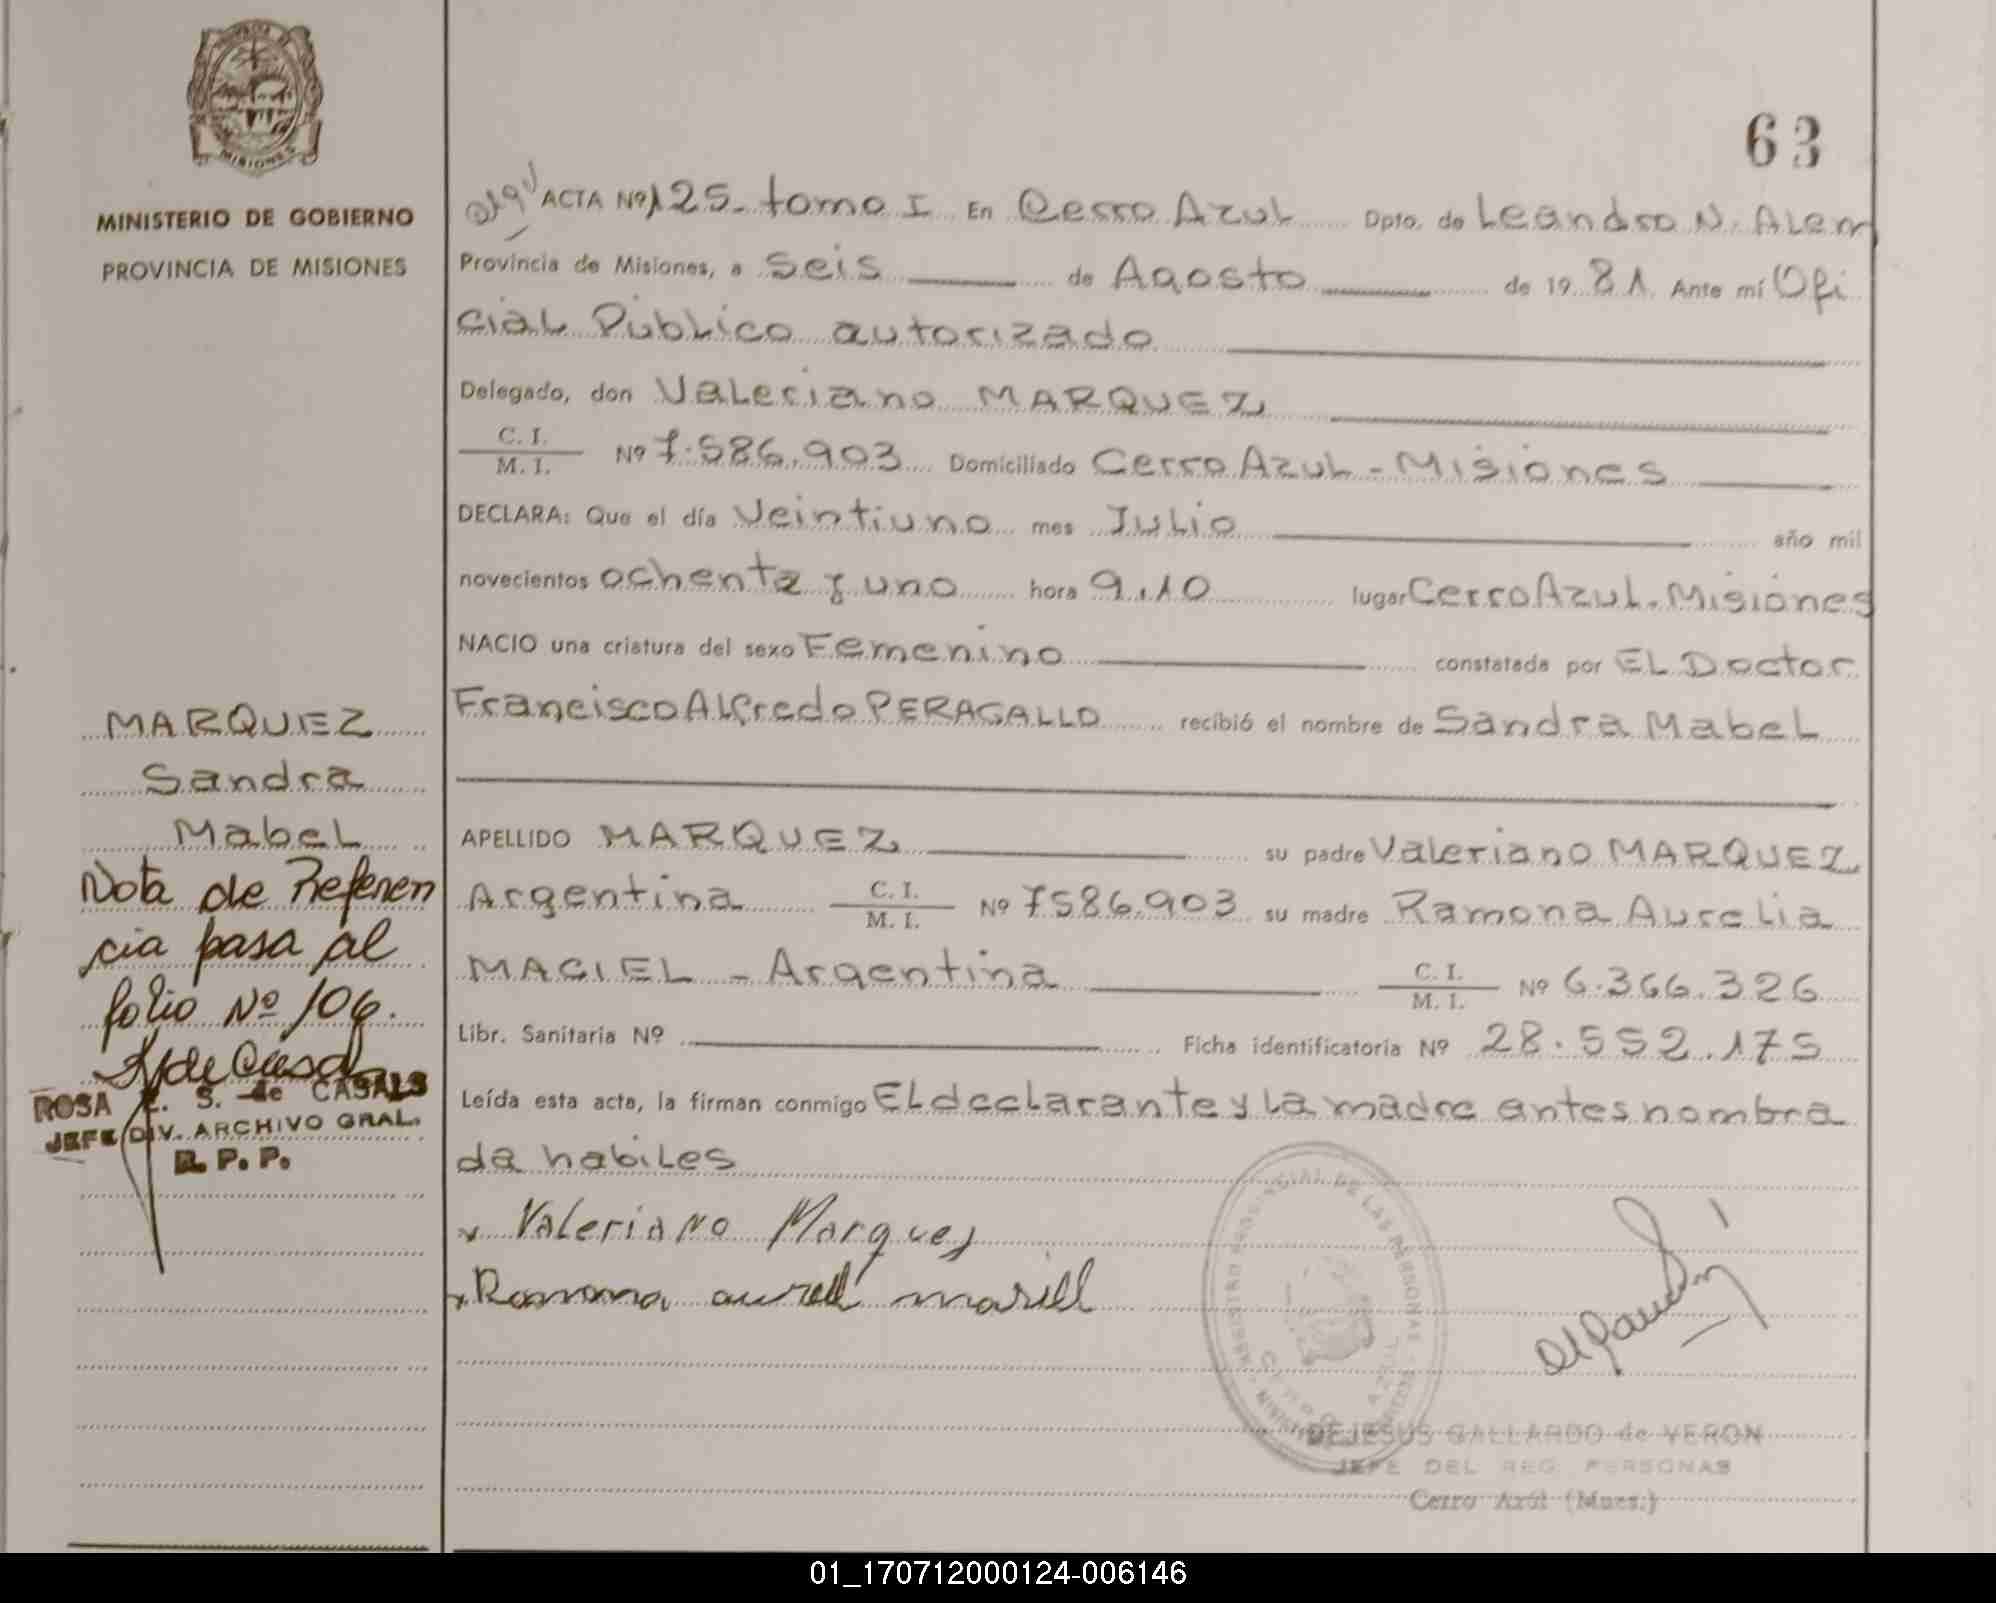 MISIONES
63
MINISTERIO DE GOBIERNO
PROVINCIA DE MISIONES
ACTA Nº 125- tomo I En Cerro Azul Dpto. de Leandro N. Alem
Provincia de Misiones, a seis de Agosto de 1981 Ante mí Ofi
cial Público autorizado
Delegado, don Valeriano MARQUEZ
C. I.
M. I. Nº 7.586.903 Domiciliado Cerro Azul - Misiones
DECLARA: Que el día Veintiuno mes Julio año mil
novecientos ochenta y uno hora 9.10 lugar Cerro Azul. Misiones
NACIO una criatura del sexo Femenino constatada por EL Doctor
Francisco Alfredo PERAGALLO recibió el nombre de Sandra Mabel
APELLIDO MARQUEZ su padre Valeriano MARQUEZ
Argentina C. I.
M. I. Nº 7586.903 su madre Ramona Aurelia
MACIEL - Argentina C. I.
M. I. Nº 6.366.326
Libr. Sanitaria Nº Ficha identificatoria Nº 28.552.175
Leída esta acta, la firman conmigo El declarante y la madre antes nombra
da habiles
Valeriano Marquez
Ramona
MARQUEZ
Sandra
Mabel
Nota de Referen
cia pasa al
folio Nº 106.
ROSA E. S. de CASALS
JEFE DIV. ARCHIVO GRAL.
R. P. P.
REGISTRO PROVINCIAL DE LAS PERSONAS
CERRO AZUL
DEJESUS GALLARDO de VERON
JEFE DEL REG. PERSONAS
Cerro Azúl (Mnes.)
01_170712000124-006146